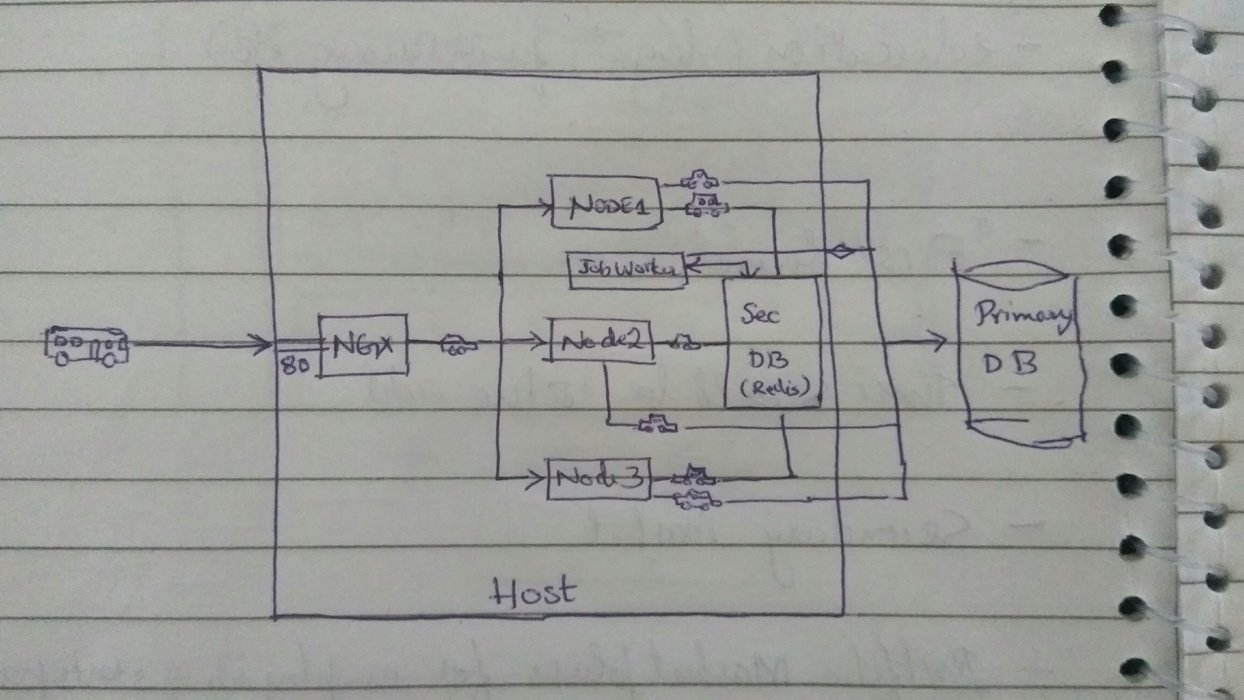 NODE1
Job Worker
80
NGpx
Node2
Sec
DB
(Redis)
Primary
DB
Node3
Host